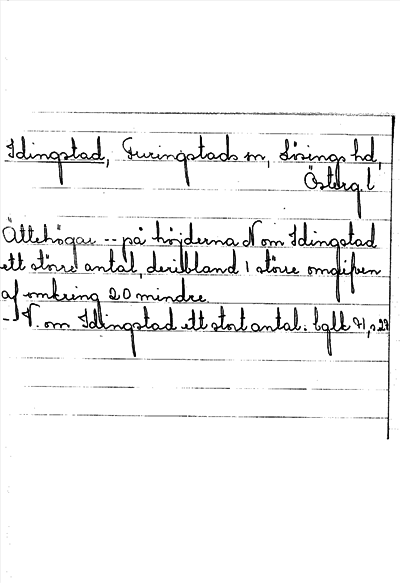 Idingstad, Furingstads sn, Lösings hd,
Österg. l
Ättehögar -- på höjderna N om Idingstad
ett större antal, deribland 1 större omgifven
af omkring 20 mindre.
-- V. om Idingstad ett stort antal.